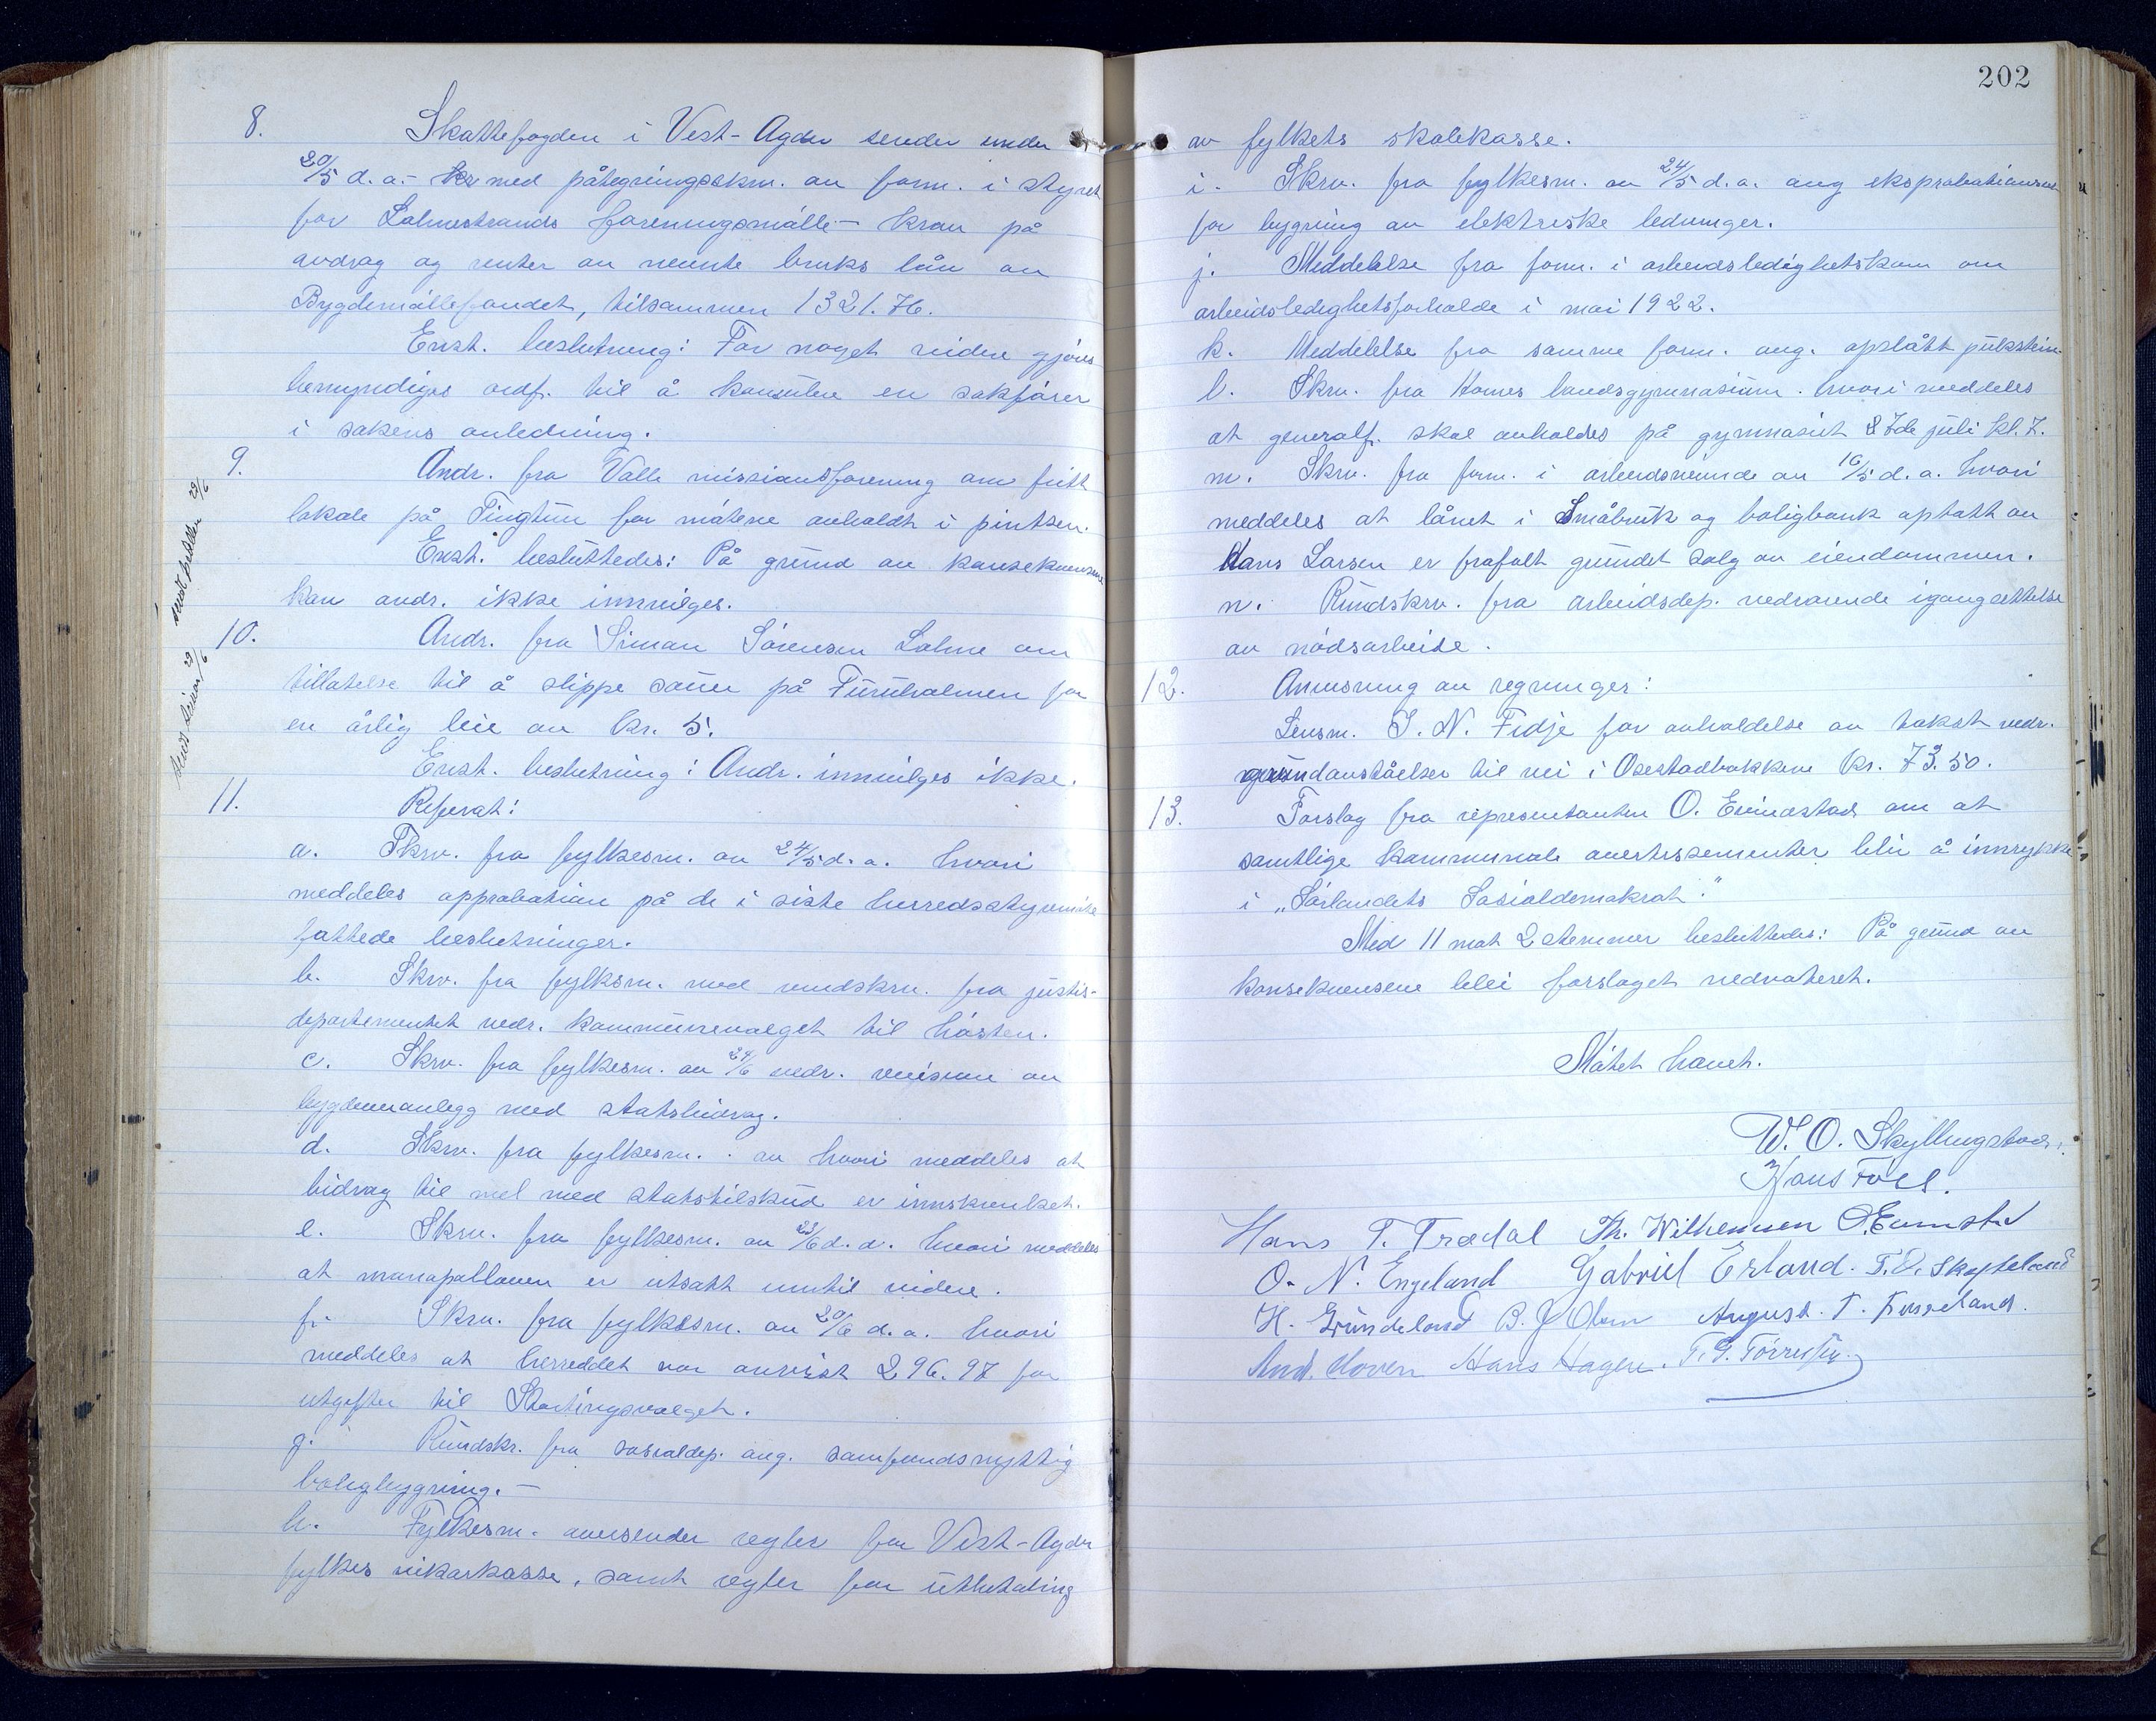 8. Skattefogden i Vest-Agder sender under
20/5 d.a. med påtegningsskrv. av form. i styret
for Lohnestrands foreningsmølle - krav på
avdrag og renter av nevnte bruks lån av
Bygdemøllefondet, tilsammen 1321.76.
Enst. beslutning: Før noget videre gjøres
bemyndiges ordf. til å konsulere en sakfører
i sakens anledning.
9. Andr. fra Valle missionsforening om fritt
lokale på Tingtun for møtene avholdt i pintsen.
Enst. besluttedes: På grund av konsekvensene
kan andr. ikke innvilges.
10. Andr. fra Simon Sørensen Lohne om
tillatelse til å slippe sauer på Furuholmen for
en årlig leie av kr. 5.
Enst. beslutning: Andr. innvilges ikke.
11. Referat:
a. Skrv. fra fylkesm. av 24/5 d.a. hvori
meddeles approbation på de i siste herredsstyremøte
fattede beslutninger.
b. Skrv. fra fylksm. med rundskrv. fra justis-
departementet vedr. kommunevalget til høsten.
c. Skrv. fra fylkesm. av 24/6 vedr. revision av
bygdeveianlegg med statsbidrag.
d. Skrv. fra fylkesm. av hvori meddeles at
bidrag til mel med statstilskud er innskrenket.
e. Skrv. fra fylkesm. av 23/6 d.a. hvori meddeles
at monopolloven er utsatt inntil videre.
f. Skrv. fra fylkesm. av 20/6 d.a. hvori
meddeles at herreddet var anvist 296.97 for
utgifter til Stortingsvalget.
g. Rundskr. fra sosialdep. ang. samfundsnyttig
boligbygning. -
h. Fylkesm. oversender regler for Vest-Agder
fylkes vikarkasse, samt regler for utbetaling
202
av fylkets skolekasse.
i. Skrv. fra fylkesm. av 24/5 d.a. ang ekspropriationsret
for bygning av elektriske ledninger.
j. Meddelelse fra form. i arbeidsledighetskom om
arbeidsledighetsforholde i mai 1922.
k. Meddelelse fra samme form. ang. opslått pukstein.
l. Skrv. fra Homes landsgymnasium. hvori meddeles
at generalf. skal avholdes på gymnasiet 7de juli kl. 7.
m. Skrv. fra form. i arbeidsnevnde av 16/5 d.a. hvori
meddeles at lånet i Småbruk og boligbank optatt av
Hans Larsen er frafalt grundet salg av eiendommen.
n. Rundskrv. fra arbeidsdep. vedrørende igangsettelse
av nødsarbeide.
12. Anvisning av regninger:
Lensm. S. N. Fidje for avholdelse av takst vedr.
grundavståelser til vei i Osestadbakkene kr. 73.50.
13. Forslag fra representanten O. Eivindstad om at
samtlige kommunale avertissementer blir å innrykke
i „Sørlandets Sosialdemokrat."
Med 11 mot 2 stemmer besluttedes: På grund av
konsekvensene blei forslaget nedvoteret.
Møtet hævet.
W. O. Skyllingstad.
Hans Foss.
Hans T. Trædal Th. Wilhemsen
O. N. Engeland Gabriel Erland. T.O. Skofteland
H. Grundeland B. J Olsen August. T.
And. Hoven Hans Hagen.